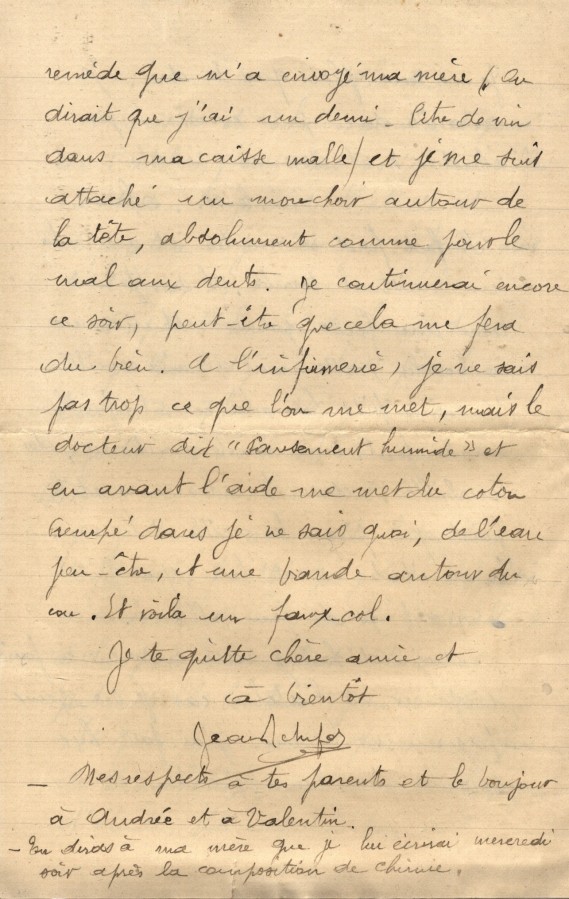 remède que m'a envoyé ma mère (On
dirait que j'ai un demi-litre de vin
dans ma caisse malle) et je me suis
attaché un mouchoir autour de
la tête, absolument comme pour le
mal aux dents. Je continuerai encore
ce soir, peut-être que cela me fera
du bien. A l'infirmerie, je ne sais
pas trop ce que l'on me met, mais le
docteur dit "Pansement humide" et
en avant l'aide me met du coton
trempé dans je ne sais quoi, de l'eau
peu-être, et une bande autour du
cou. Et voilà un faux-col.
Je te quitte chère amie et
à bientôt
Jean
– Mes respects à tes parents et le bonjour
à Andrée et à Valentin.
– Tu diras à ma mère que je lui écrirai mercredi
soir après la composition de chimie.